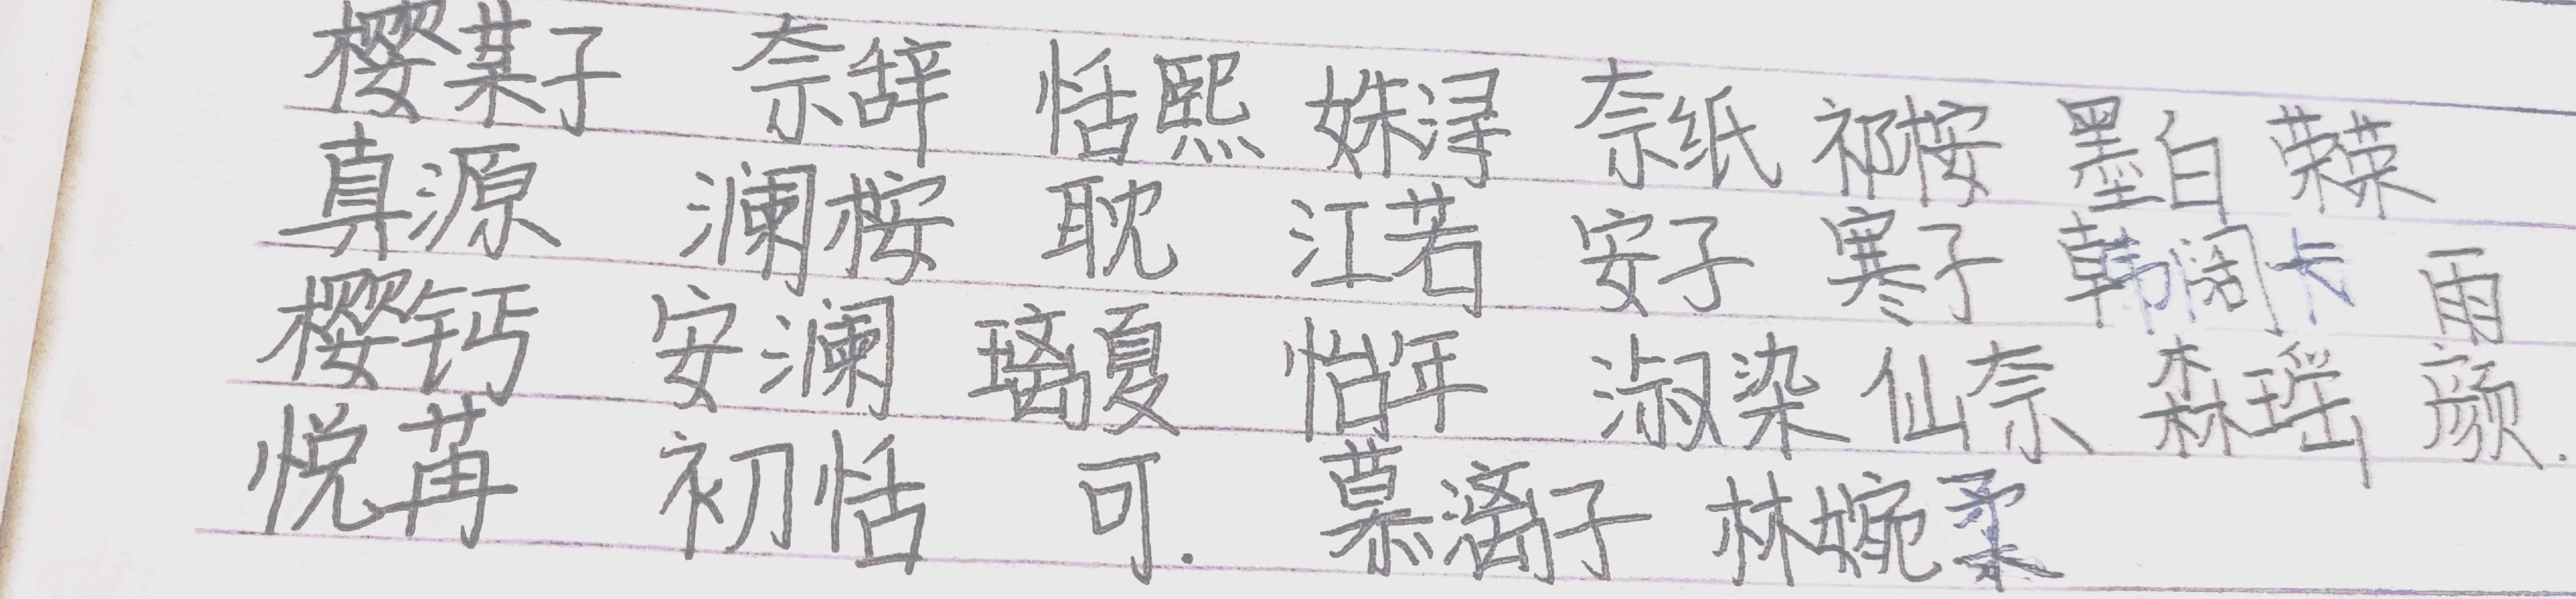 樱某子 奈辞 恬熙 姝浔 奈纸 祁桉 墨白 荣荣
真源 澜桉 耽 江若 安子 寒子 韩阔卡 雨
樱钙 安澜 璃夏 怡年 淑染 仙奈 森瑶 颜.
悦苒 初恬 可. 慕漓子 林婉柔